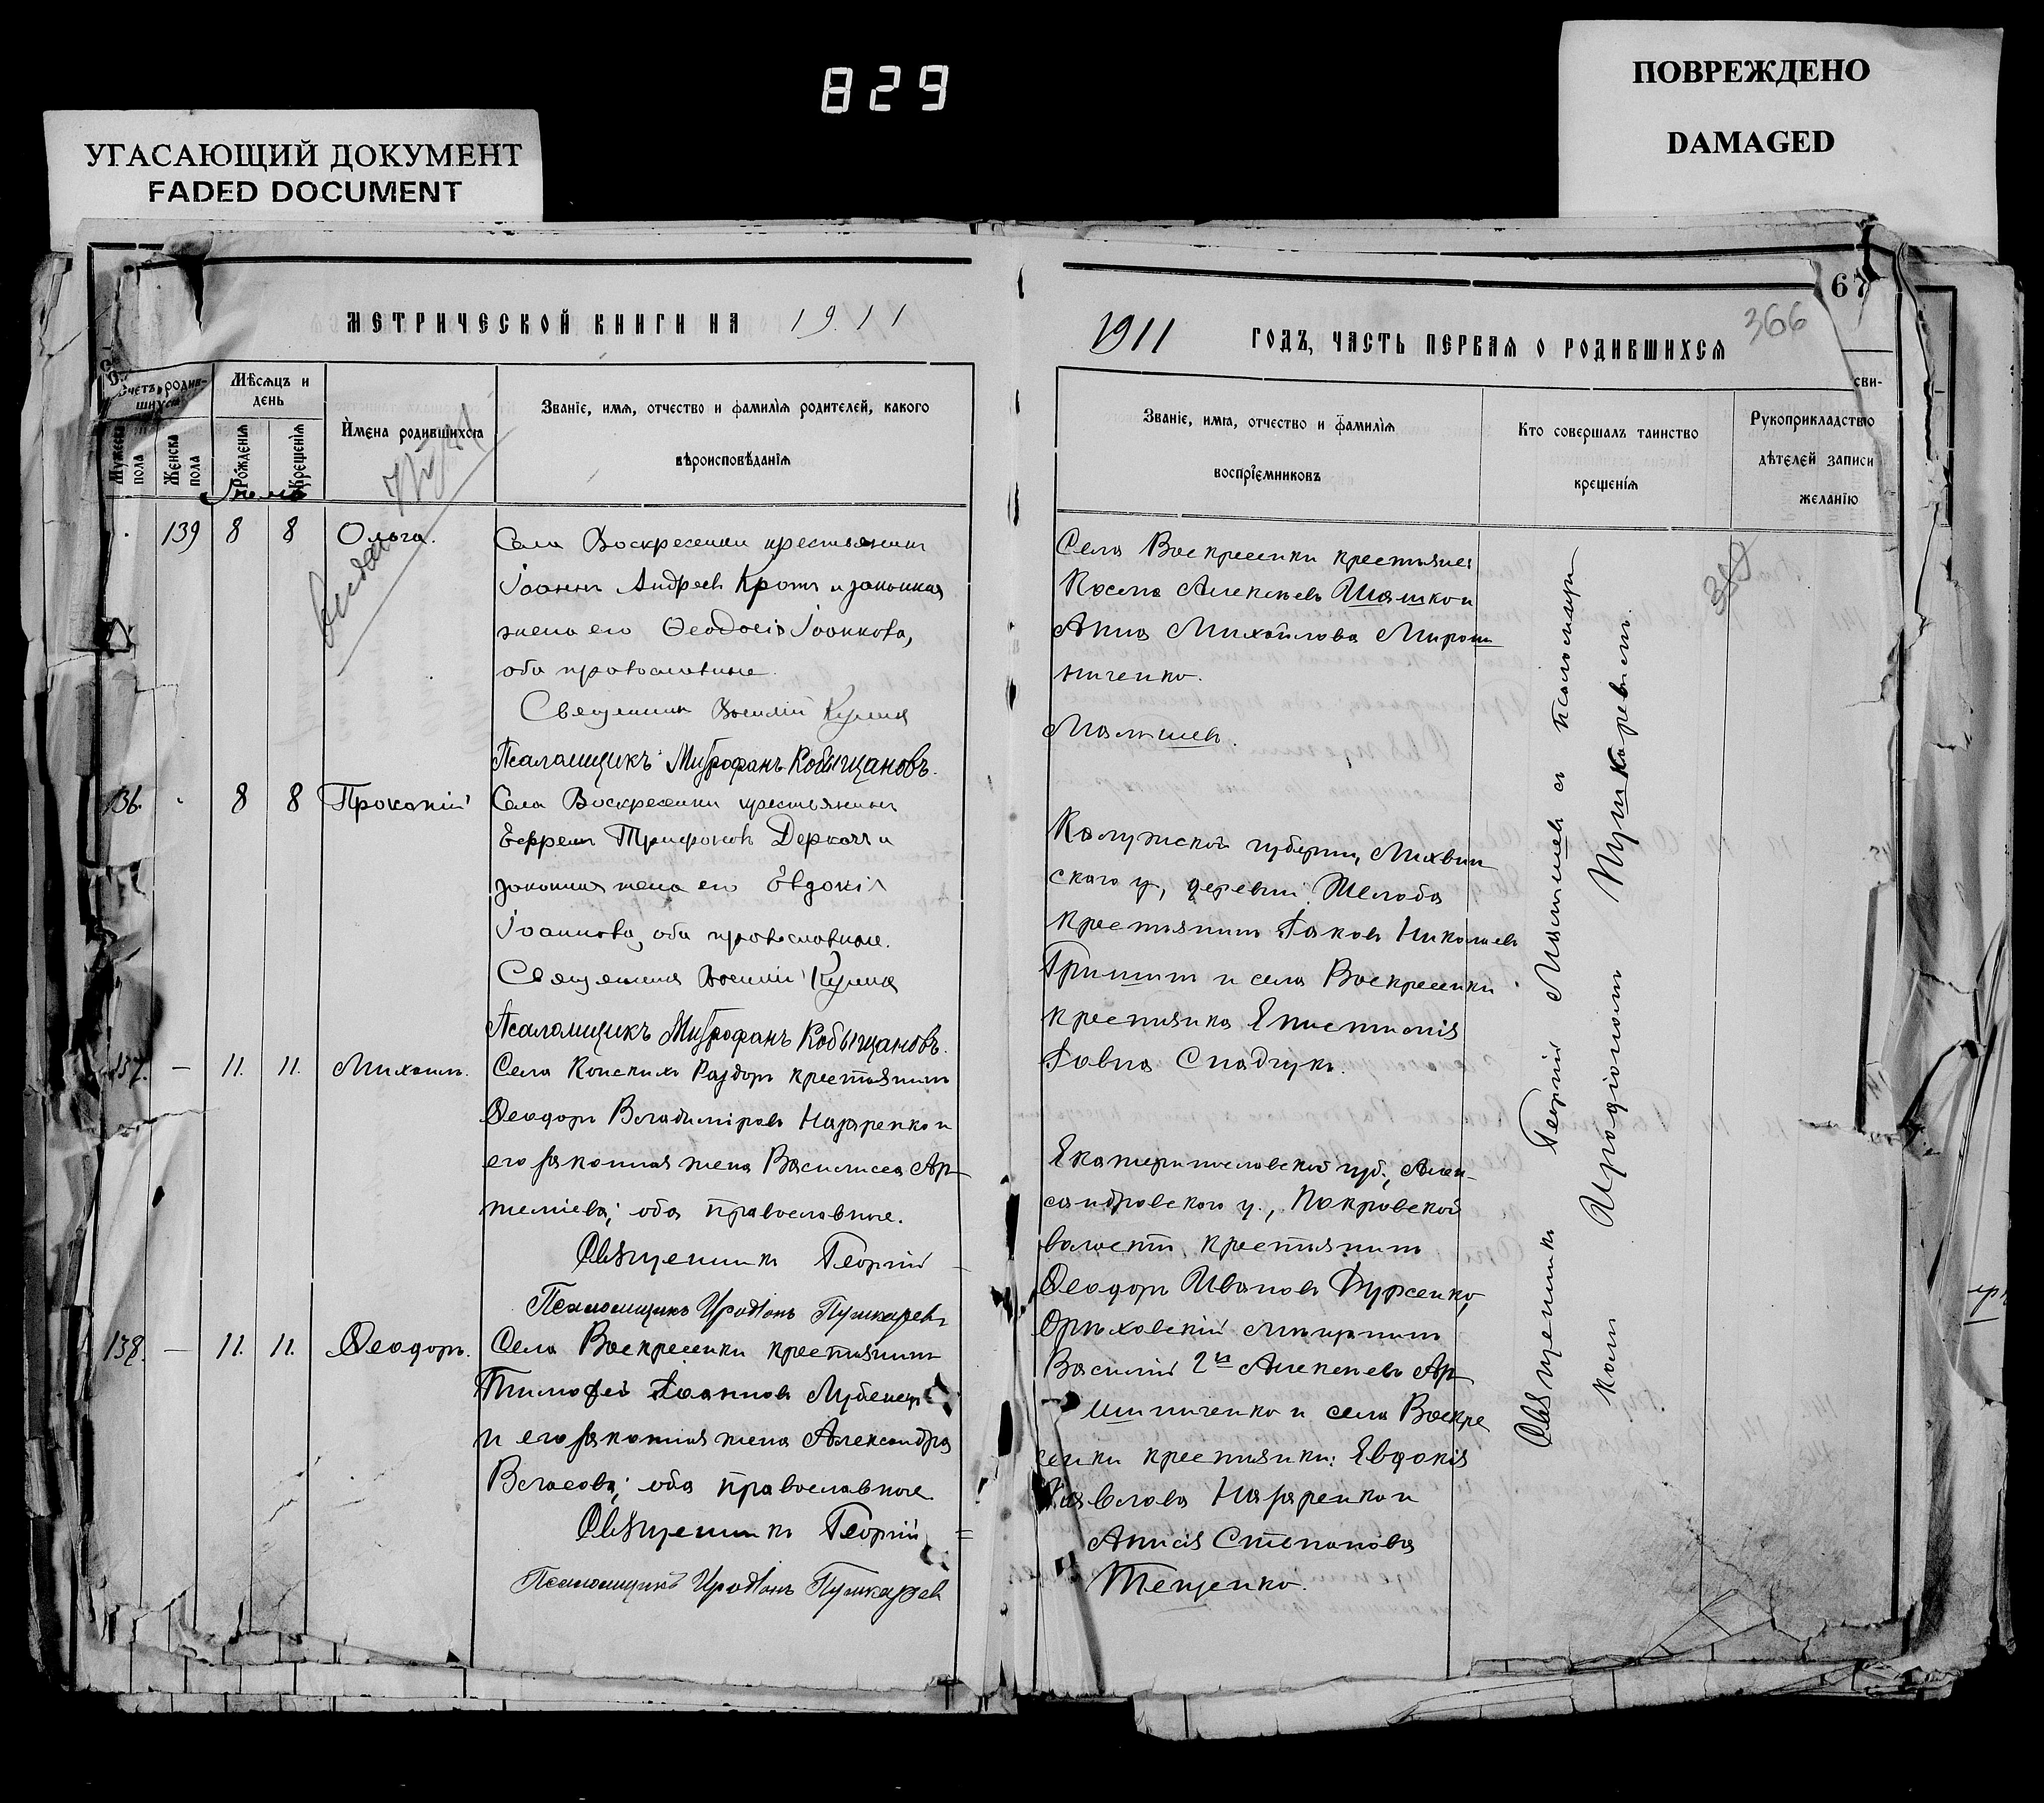 829
УГАСАЮЩИЙ ДОКУМЕНТ
FADED DOCUMENT
ПОВРЕЖДЕНО
DAMAGED
МЕТРИЧЕСКОЙ КНИГИ НА 1911
Счетъ родив-
шихся
Мѣсяцъ и
день
Имена родившихся
Званіе, имя, отчество и фамилія родителей, какого
вѣроисповѣданія
Мужеска пола
Женска пола
Рожденія
Крещенія
139 8 8 Ольга.
Села Воскресенки крестьянинъ
Іоаннъ Андреевъ Кротъ и законная
жена его Ѳеодосія Іоаннова,
оба православные.
Священникъ Василій Кулика
Псаломщикъ Митрофанъ Кобыщановъ.
136. 8 8 Прокопій
Села Воскресенки крестьянинъ
Ефремъ Трифоновъ Деркачъ и
законная жена его Евдокія
Іоаннова, оба православные.
Священникъ Василій Кулика
Псаломщикъ Митрофанъ Кобыщановъ.
137. — 11. 11. Михаилъ.
Села Конскихъ Раздоръ крестьянинъ
Ѳеодоръ Владиміровъ Назаренко и
его законная жена Василисса Ар-
темієва; оба православные.
Священникъ Георгій
Псаломщикъ Иродіонъ Пушкаревъ
138. — 11. 11. Ѳеодоръ.
Села Воскресенки крестьянинъ
Тимофей Іоанновъ
и его законная жена Александра
Власова; оба православные
Священникъ Георгій =
Псаломщикъ Иродіонъ Пушкаревъ
67
366
1911 ГОДЪ, ЧАСТЬ ПЕРВАЯ О РОДИВШИХСЯ
Званіе, имя, отчество и фамилія
воспріемниковъ
Кто совершалъ таинство
крещенія
сви-
Рукоприкладство
дѣтелей записи
желанію
Села Воскресенки крестьяне:
Косма Алексѣевъ Шашко и
Анна Михайлова Мирош
ниченко.
Малышевъ.
Калужской губерніи, Лихвин
скаго у., деревни Желоба
крестьянинъ Іаковъ Николаевъ
Гришинъ и села Воскресенки
крестьянка Епистимія
Іовна Снадчукъ.
Екатеринославской губ., Алек-
сандровского у., Покровской
волости, крестьянинъ
Ѳеодоръ Ивановъ
Орѣховскій мѣщанинъ
Василій 2й Алексѣевъ Ар-
шиниченко и села Воскре
сенки крестьянки: Евдокія
Павлова Назаренко и
Анисія Степанова
Тещенко.
Священникъ Георгій Малышевъ съ псаломщи
комъ Иродіономъ Пушкаревымъ.